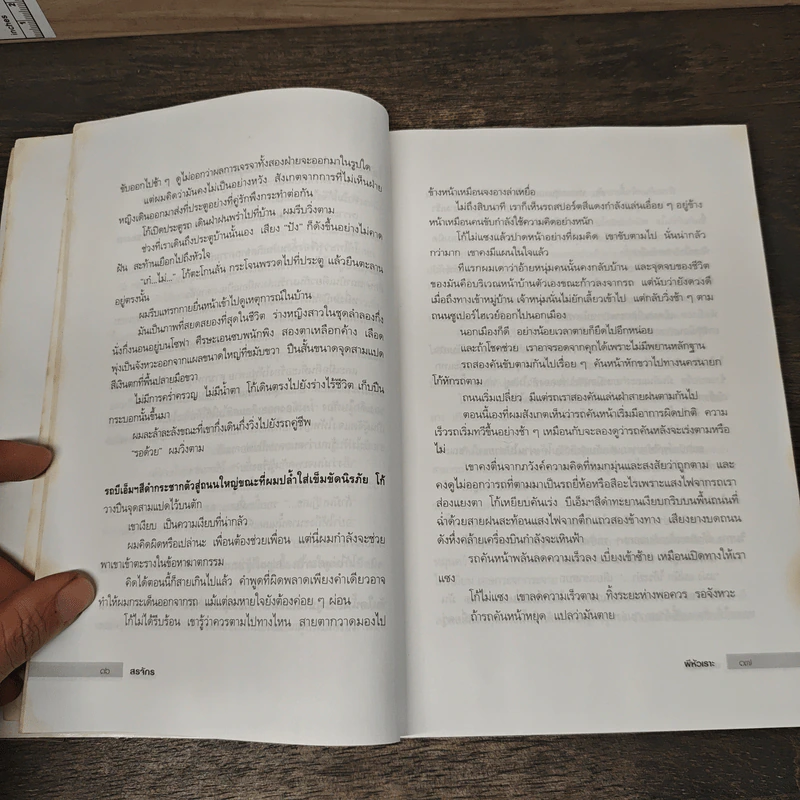 inches 1 2
ขับออกไปช้า ๆ ดูไม่ออกว่าผลการเจรจาทั้งสองฝ่ายจะออกมาในรูปใด
แต่ผมคิดว่ามันคงไม่เป็นอย่างหวัง สังเกตจากการที่ไม่เห็นฝ่าย
หญิงเดินออกมาส่งที่ประตูอย่างที่คู่รักพึงกระทำต่อกัน
โก้เปิดประตูรถ เดินฝ่าฝนพรำไปที่บ้าน ผมรีบวิ่งตาม
ช่วงที่เราเดินถึงประตูบ้านนั้นเอง เสียง "ปัง" ก็ดังขึ้นอย่างไม่คาด
ฝัน สะท้านเยือกไปถึงหัวใจ
"เก๋...ไม่..." โก้ตะโกนลั่น กระโจนพรวดไปที่ประตู แล้วยืนตะลาน
อยู่ตรงนั้น
ผมรีบแทรกกายยื่นหน้าเข้าไปดูเหตุการณ์ในบ้าน
มันเป็นภาพที่สยดสยองที่สุดในชีวิต ร่างหญิงสาวในชุดลำลองกึ่ง
นั่งกึ่งนอนอยู่บนโซฟา ศีรษะเอนซบพนักพิง สองตาเหลือกค้าง เลือด
พุ่งเป็นจังหวะออกจากแผลขนาดใหญ่ที่ขมับขวา ปืนสั้นขนาดจุดสามแปด
สีเงินตกที่พื้นปลายมือขวา
ไม่มีการคร่ำครวญ ไม่มีน้ำตา โก้เดินตรงไปยังร่างไร้ชีวิต เก็บปืน
กระบอกนั้นขึ้นมา
ผมละล้าละลังขณะที่เขากึ่งเดินกึ่งวิ่งไปยังรถคู่ชีพ
"รอด้วย" ผมวิ่งตาม
รถบีเอ็มฯสีดำกระชากตัวสู่ถนนใหญ่ขณะที่ผมปล้ำใส่เข็มขัดนิรภัย โก้
วางปืนจุดสามแปดไว้บนตัก
เขาเงียบ เป็นความเงียบที่น่ากลัว
ผมคิดผิดหรือเปล่านะ เพื่อนต้องช่วยเพื่อน แต่นี่ผมกำลังจะช่วย
พาเขาเข้าตะรางในข้อหาฆาตกรรม
คิดได้ตอนนี้ก็สายเกินไปแล้ว คำพูดที่ผิดพลาดเพียงคำเดียวอาจ
ทำให้ผมกระเด็นออกจากรถ แม้แต่ลมหายใจยังต้องค่อย ๆ ผ่อน
โก้ไม่ได้รีบร้อน เขารู้ว่าควรตามไปทางไหน สายตากวาดมองไป
๓๖ สรจักร
ข้างหน้าเหมือนจงอางล่าเหยื่อ
ไม่ถึงสิบนาที เราก็เห็นรถสปอร์ตสีแดงกำลังแล่นเอื่อย ๆ อยู่ข้าง
หน้าเหมือนคนขับกำลังใช้ความคิดอย่างหนัก
โก้ไม่แซงแล้วปาดหน้าอย่างที่ผมคิด เขาขับตามไป นั่นน่ากลัว
กว่ามาก เขาคงมีแผนในใจแล้ว
ทีแรกผมเดาว่าอ้ายหนุ่มคนนั้นคงกลับบ้าน และจุดจบของชีวิต
ของมันคือบริเวณหน้าบ้านตัวเองขณะก้าวลงจากรถ แต่นับว่ายังดวงดี
เมื่อถึงทางเข้าหมู่บ้าน เจ้าหนุ่มนั่นไม่ยักเลี้ยวเข้าไป แต่กลับวิ่งช้า ๆ ตาม
ถนนซูเปอร์ไฮเวย์ออกไปนอกเมือง
นอกเมืองก็ดี อย่างน้อยเวลาตายก็ยืดไปอีกหน่อย
และถ้าโชคช่วย เราอาจรอดจากคุกได้เพราะไม่มีพยานหลักฐาน
รถสองคันขับตามกันไปเรื่อย ๆ คันหน้าหักขวาไปทางนครนายก
โก้หักรถตาม
ถนนเริ่มเปลี่ยว มีแต่รถเราสองคันแล่นฝ่าสายฝนตามกันไป
ตอนนี้เองที่ผมสังเกตเห็นว่ารถคันหน้าเริ่มมีอาการผิดปกติ ความ
เร็วรถเริ่มทวีขึ้นอย่างช้า ๆ เหมือนกับจะลองดูว่ารถคันหลังจะเร่งตามหรือ
ไม่
เขาคงตื่นจากภวังค์ความคิดที่หมกมุ่นและสงสัยว่าถูกตาม และ
คงดูไม่ออกว่ารถที่ตามมาเป็นรถยี่ห้อหรือสีอะไรเพราะแสงไฟจากรถเรา
ส่องแยงตา โก้เหยียบคันเร่ง บีเอ็มฯสีดำทะยานเงียบกริบบนพื้นถนนที่
ฉ่ำด้วยสายฝนสะท้อนแสงไฟจากตึกแถวสองข้างทาง เสียงยางบดถนน
ดังหึ่งคล้ายเครื่องบินกำลังจะเหินฟ้า
รถคันหน้าพลันลดความเร็วลง เบี่ยงเข้าซ้าย เหมือนเปิดทางให้เรา
แซง
โก้ไม่แซง เขาลดความเร็วตาม ทิ้งระยะห่างพอควร รอจังหวะ
ถ้ารถคันหน้าหยุด แปลว่ามันตาย
ผีหัวเราะ ๓๗